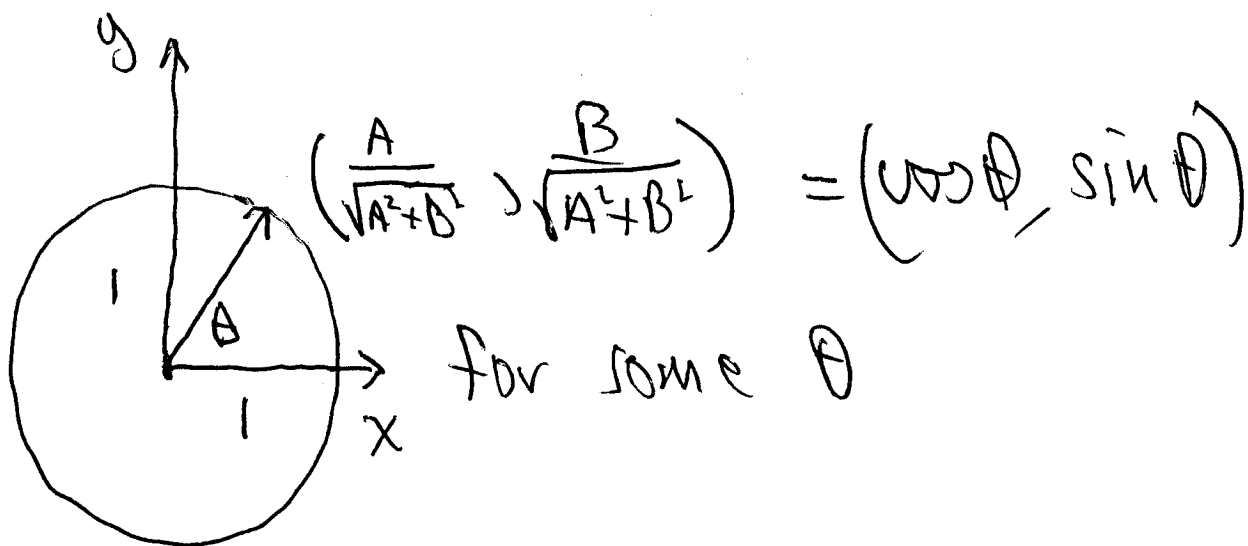 y
(A/√(A²+B²), B/√(A²+B²)) = (cos θ, sin θ)
1
θ
for some θ
1
x